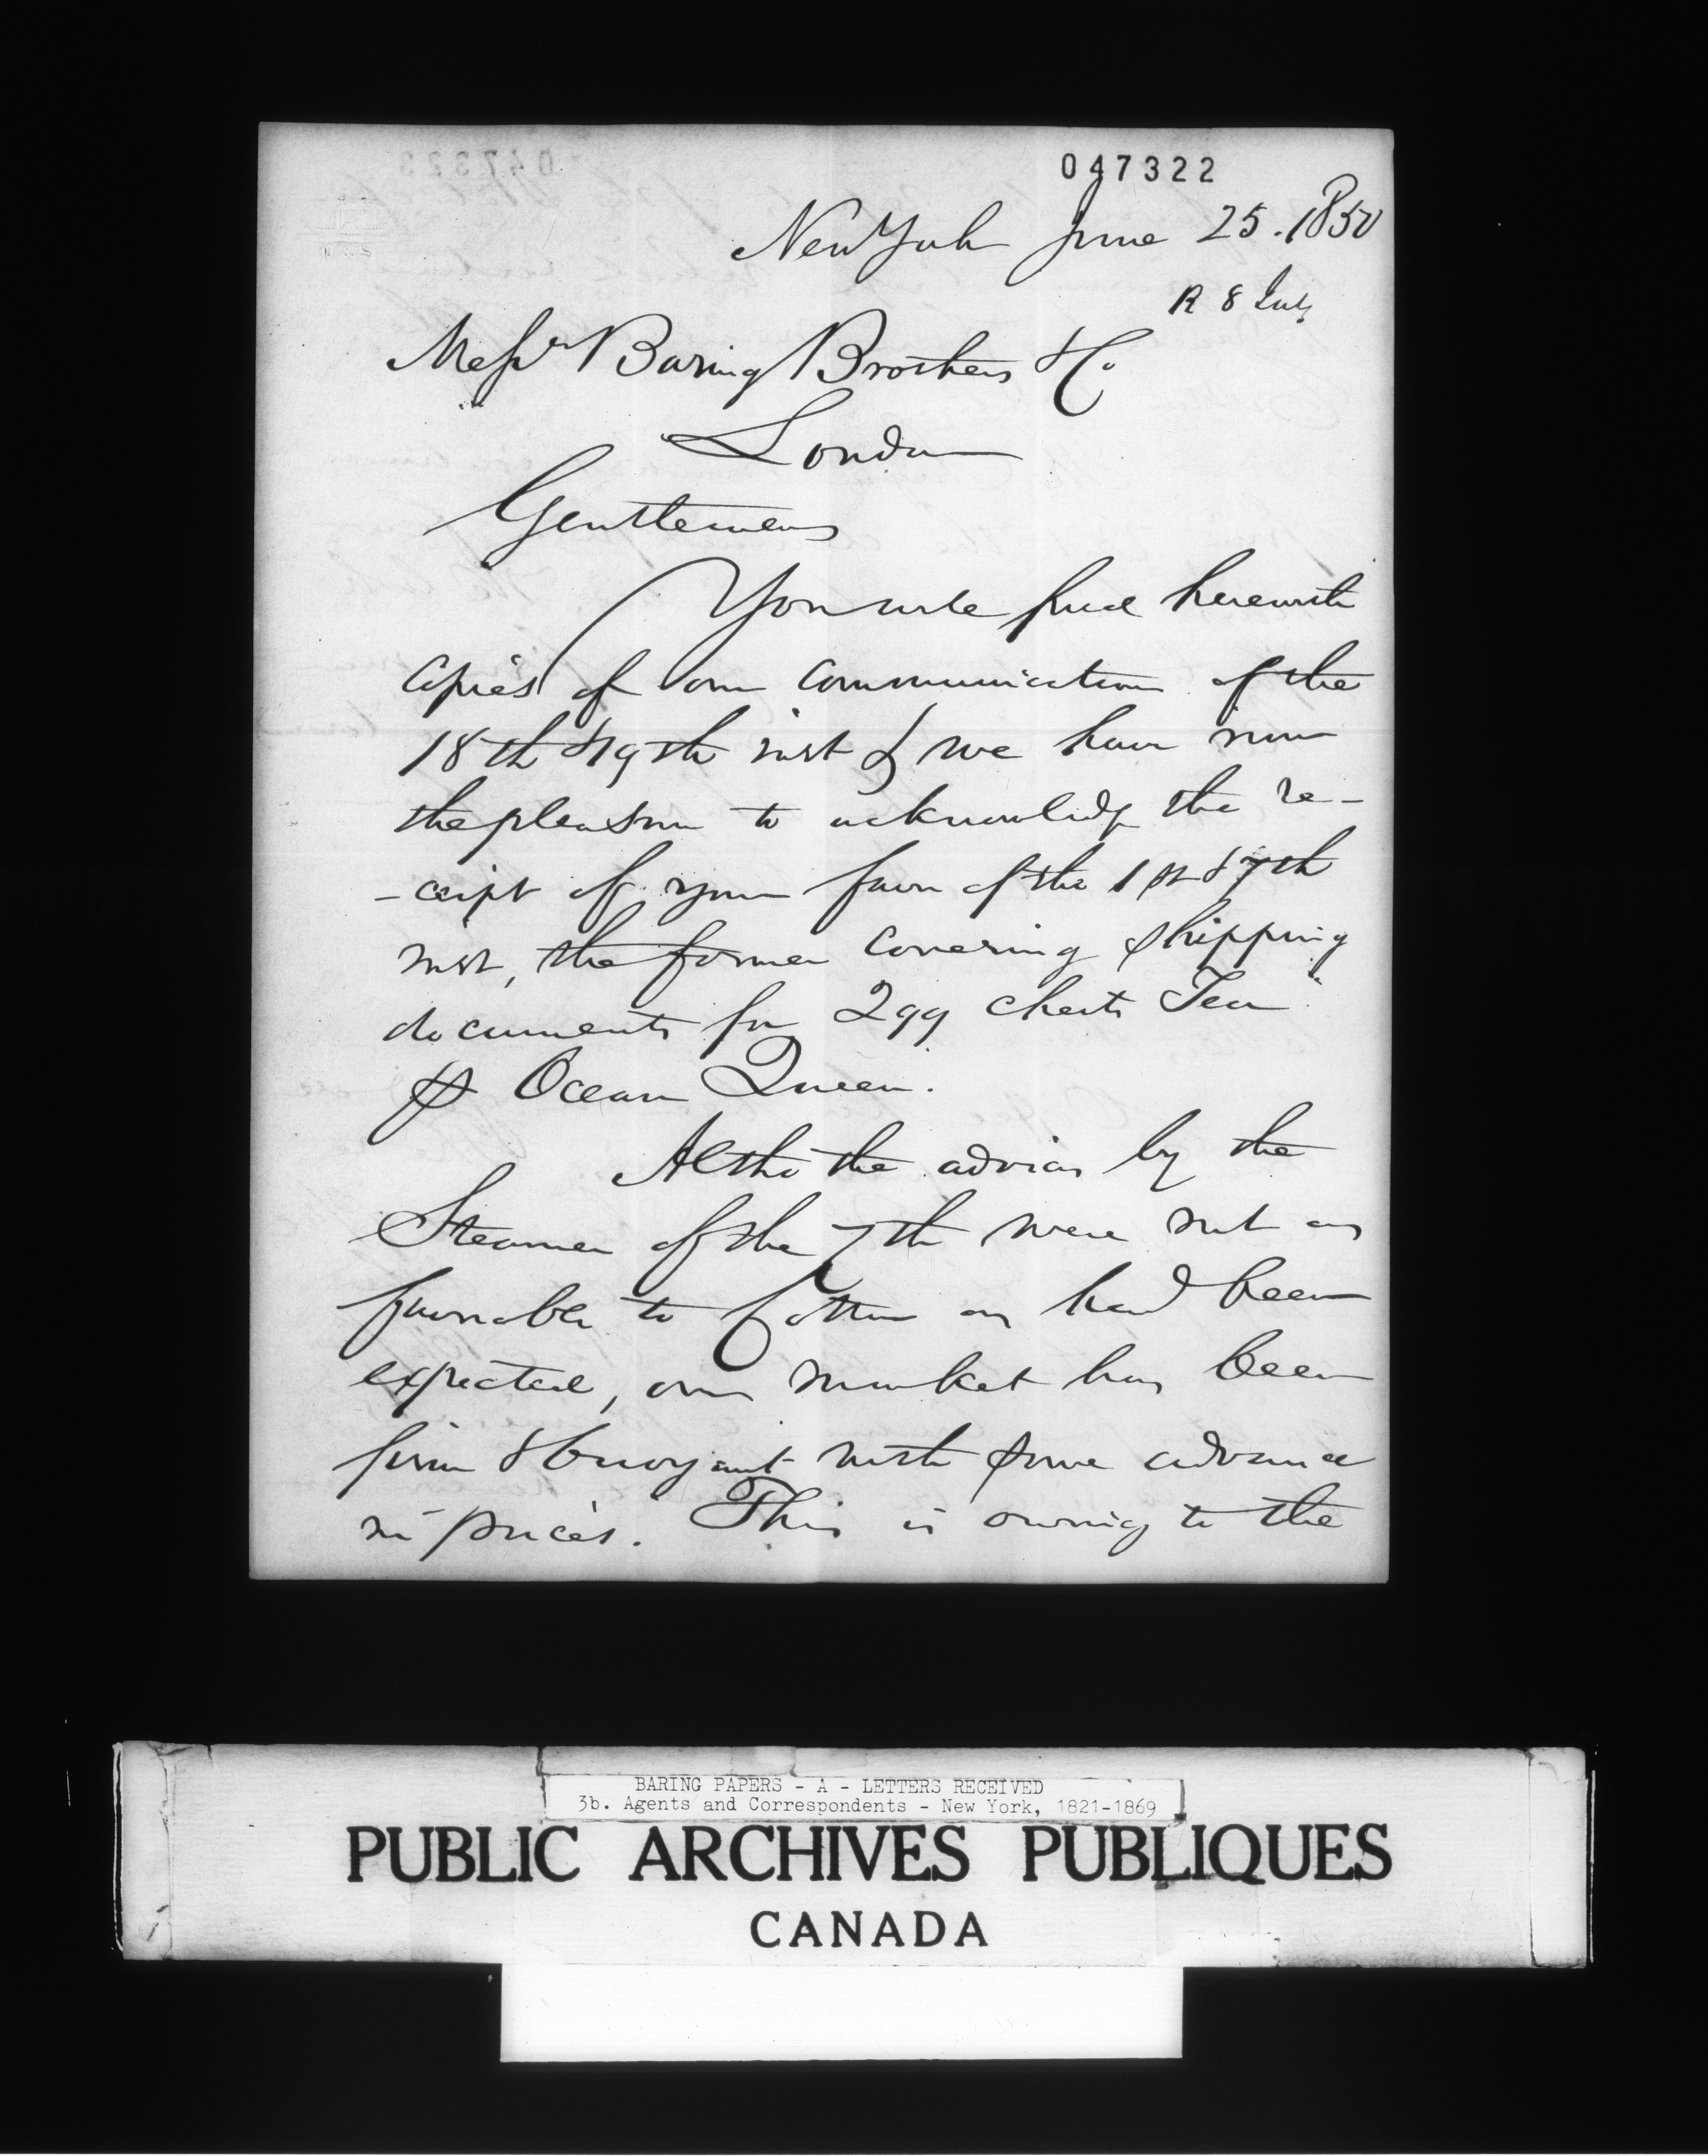 047322
New York June 25. 1850
R 8 July
Messrs Baring Brothers & Co
London
Gentlemen
You will find herewith
copies of our communication of the
18th & 19th inst & we have now
the pleasure to acknowledge the re-
-ceipt of your favor of the 1st & 7th
inst, the former covering shipping
documents for 299 chests Tea
⅌ Ocean Queen.
Altho the advices by the
Steamer of the 7th were not as
favorable to Cotton as had been
expected, our market has been
firm & buoyant with some advance
in prices. This is owing to the
BARING PAPERS - A - LETTERS RECEIVED
3b. Agents and Correspondents - New York, 1821-1869
PUBLIC ARCHIVES PUBLIQUES
CANADA